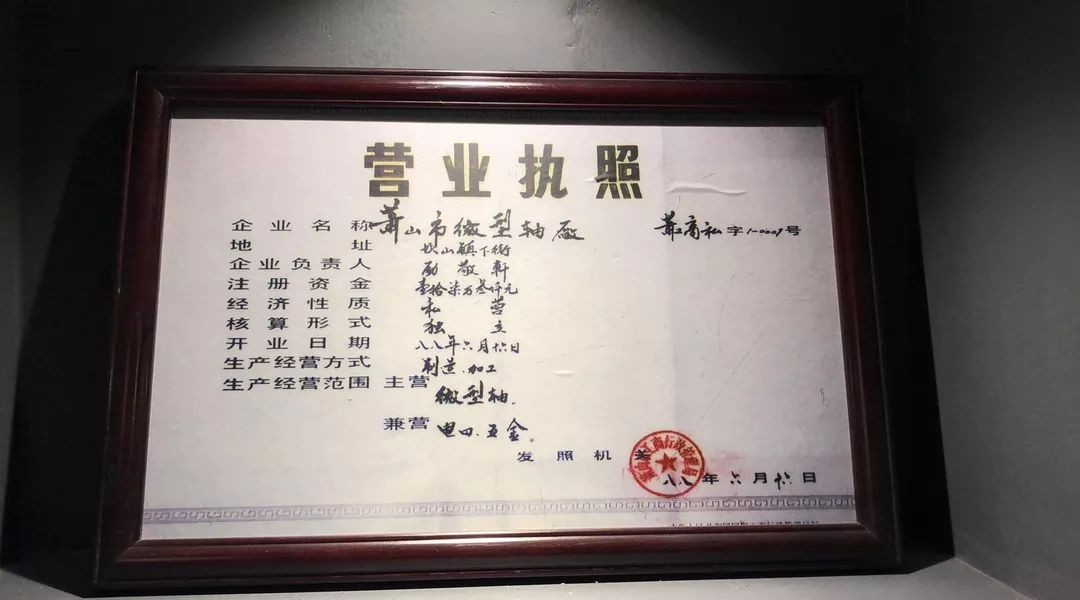 营业执照
企业名称 萧山市微型轴厂 萧工商私字1-0009号
地址 坎山镇下街
企业负责人 励敬轩
注册资金 壹拾柒万叁仟元
经济性质 私营
核算形式 独立
开业日期 八八年六月十六日
生产经营方式 制造.加工
生产经营范围 主营 微型轴.
兼营 电四.五金。
发照机关
萧山县工商行政管理局
八八年六月十六日